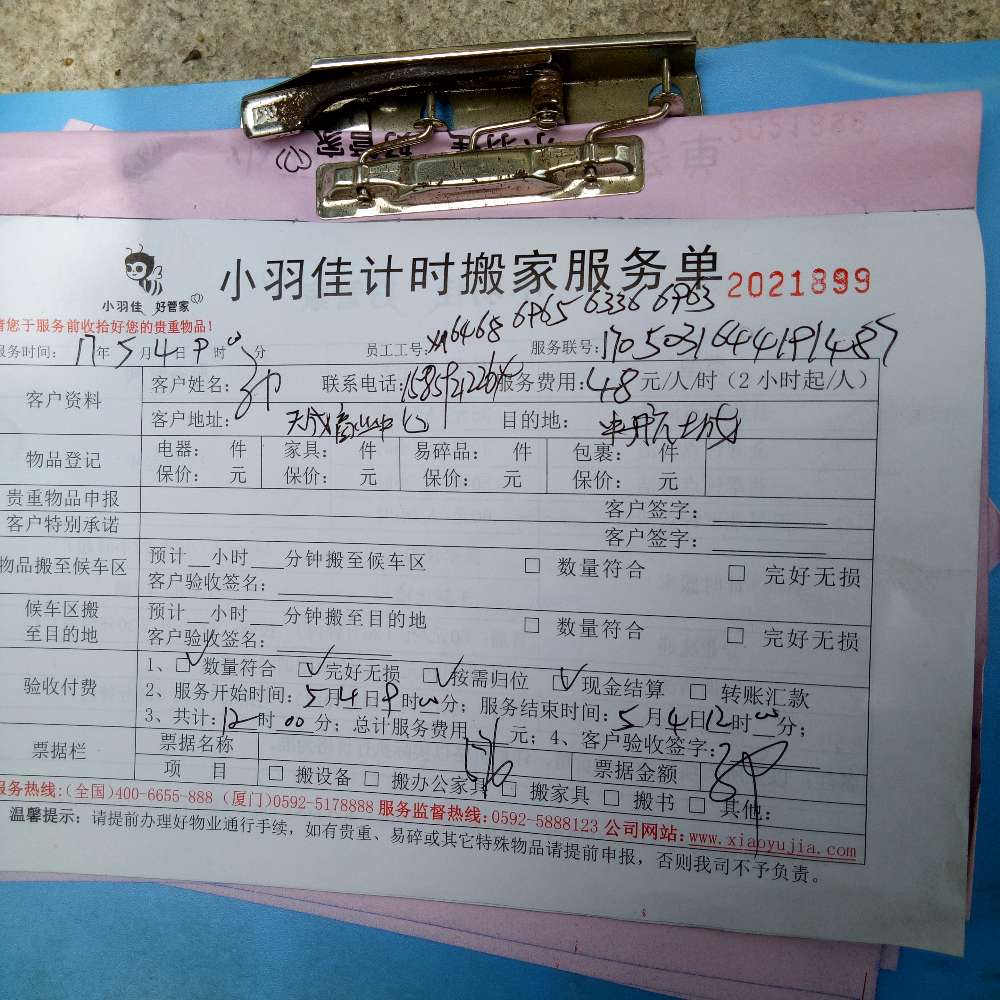 小羽佳 好管家
小羽佳计时搬家服务单 2021899
请您于服务前收拾好您的贵重物品!
服务时间: 17年5月4日9时00分 员工工号: 6468 6965 6336 6963 服务联号:
客户资料 客户姓名: 联系电话: 服务费用:48元/人/时（2小时起/人）
客户地址: 目的地:
物品登记 电器: 件 家具: 件 易碎品: 件 包裹: 件
保价: 元 保价: 元 保价: 元 保价: 元
贵重物品申报 客户签字:
客户特别承诺 客户签字:
物品搬至候车区 预计__小时___分钟搬至候车区 □ 数量符合 □ 完好无损
客户验收签名:
候车区搬至目的地 预计__小时___分钟搬至目的地 □ 数量符合 □ 完好无损
客户验收签名:
验收付费 1、☑数量符合 ☑完好无损 ☑按需归位 ☑现金结算 □ 转账汇款
2、服务开始时间:5月4日9时00分; 服务结束时间:5月4日12时00分;
3、共计:12时00分; 总计服务费用 元; 4、客户验收签字:
票据栏 票据名称 票据金额
项 目 □ 搬设备 □ 搬办公家具 □ 搬家具 □ 搬书 □ 其他:
服务热线:(全国)400-6655-888 (厦门)0592-5178888 服务监督热线:0592-5888123 公司网站:www.xiaoyujia.com
温馨提示: 请提前办理好物业通行手续，如有贵重、易碎或其它特殊物品请提前申报，否则我司不予负责。